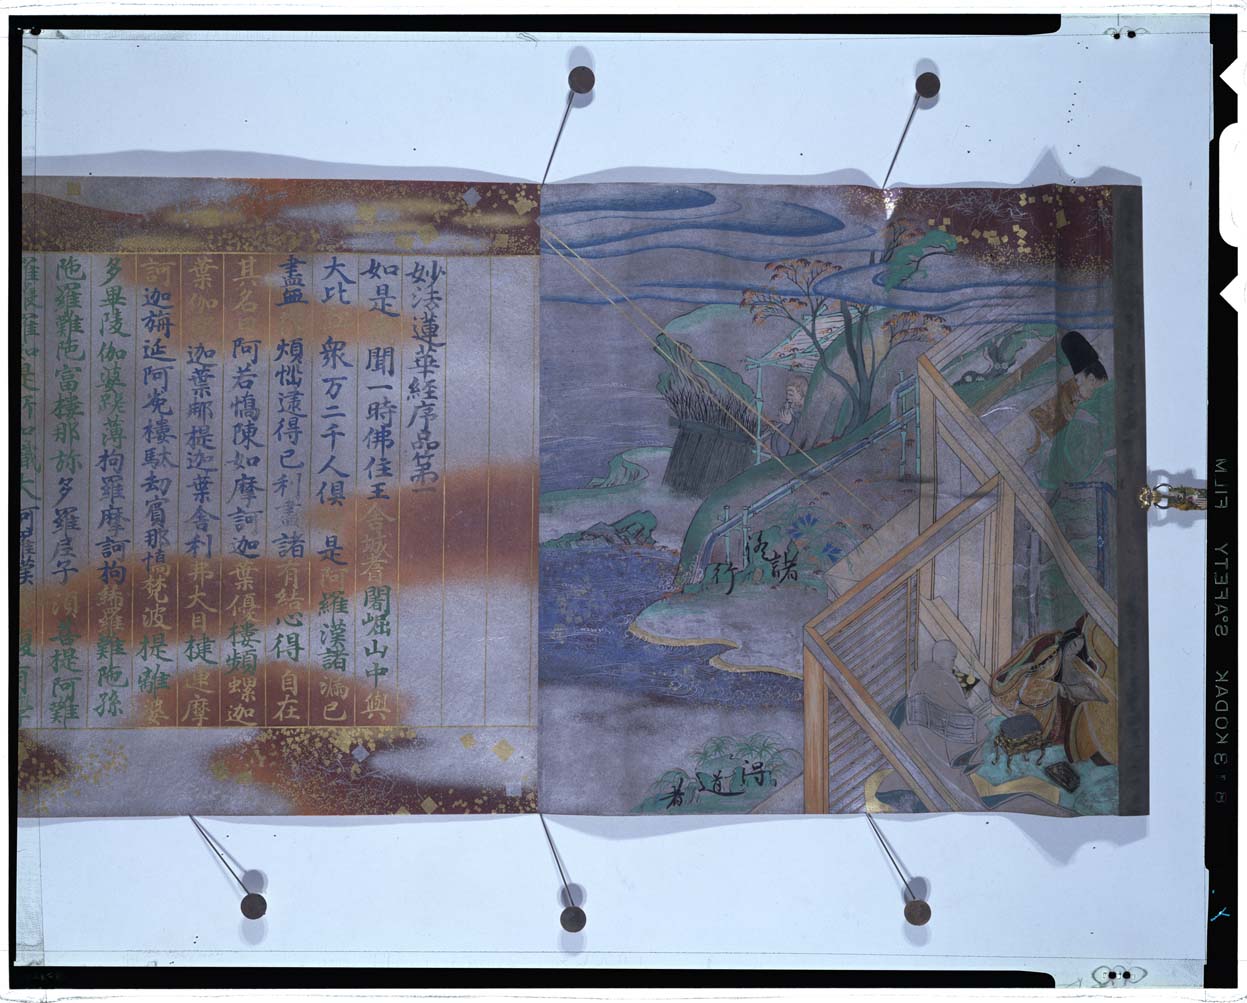 諸修行
得道者
妙法蓮華経序品第一
如是聞一時佛住王舍城耆闍崛山中與
大比衆万二千人俱是阿羅漢諸漏已
盡無煩惱逮得己利盡諸有結心得自在
其名曰阿若憍陳如摩訶迦葉優樓頻螺迦
葉伽迦葉那提迦葉舍利弗大目揵連摩
訶迦旃延阿㝹樓駄劫賓那憍梵波提離婆
多畢陵伽婆蹉薄拘羅摩訶拘絺羅難陁孫
陁羅難陁富樓那弥多羅尼子須菩提阿難
KODAK S°AFETY FILM